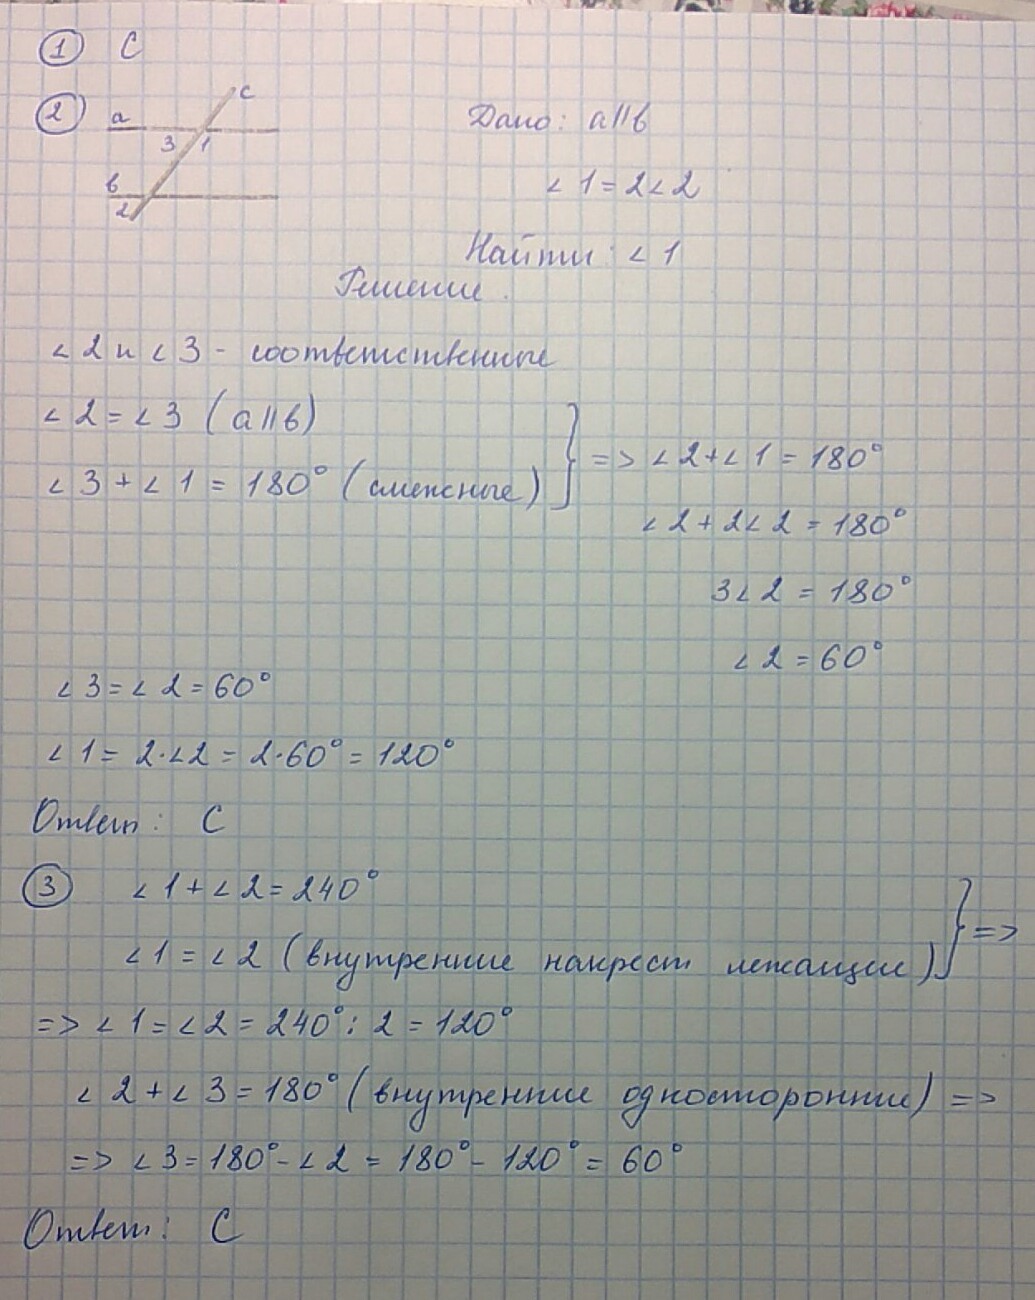 1 C
2 a c Дано: a||b
3 1
b
2
∠1 = 2∠2
Найти: ∠1
Решение.
∠2 и ∠3 - соответственные
∠2 = ∠3 (a||b)
∠3 + ∠1 = 180° (смежные) } => ∠2 + ∠1 = 180°
∠2 + 2∠2 = 180°
3∠2 = 180°
∠2 = 60°
∠3 = ∠2 = 60°
∠1 = 2·∠2 = 2·60° = 120°
Ответ: C
3 ∠1 + ∠2 = 240°
∠1 = ∠2 (внутренние накрест лежащие) } =>
=> ∠1 = ∠2 = 240° : 2 = 120°
∠2 + ∠3 = 180° (внутренние односторонние) =>
=> ∠3 = 180° - ∠2 = 180° - 120° = 60°
Ответ: C